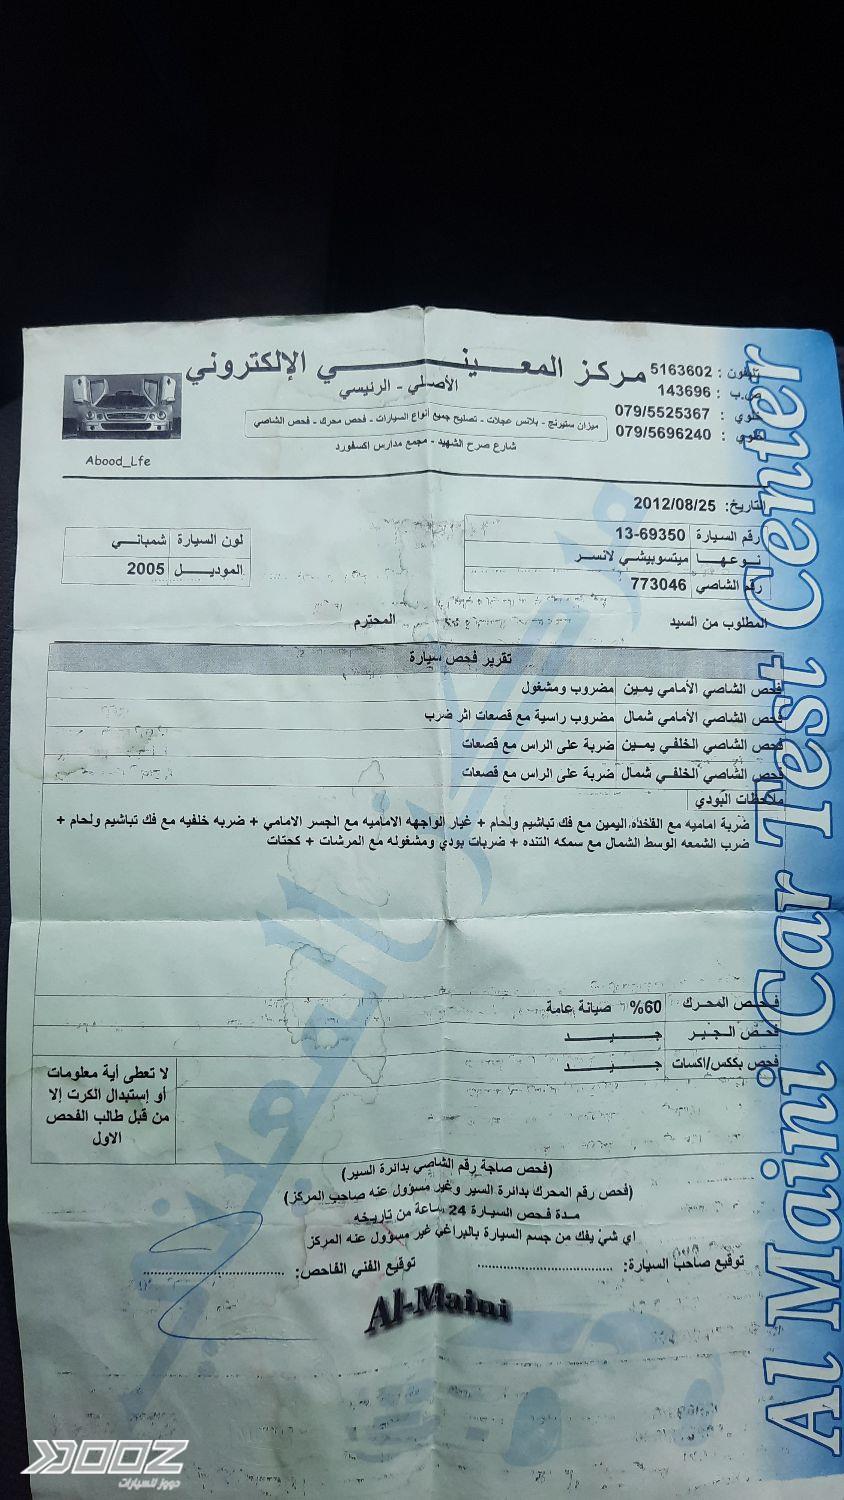 مركز المعيني الإلكتروني
الأصلي - الرئيسي
تليفون : 5163602
ص.ب : 143696
خلوي : 079/5525367
خلوي : 079/5696240
ميزان ستيرنج - بلانس عجلات - تصليح جميع أنواع السيارات - فحص محرك - فحص الشاصي
شارع صرح الشهيد - مجمع مدارس اكسفورد
Abood_Lfe
التاريخ: 2012/08/25
رقم السيارة 13-69350
نوعها ميتسوبيشي لانسر
رقم الشاصي 773046
لون السيارة شمباني
الموديل 2005
المطلوب من السيد المحترم
تقرير فحص سيارة
فحص الشاصي الأمامي يمين مضروب ومشغول
فحص الشاصي الأمامي شمال مضروب راسية مع قصعات اثر ضرب
فحص الشاصي الخلفي يمين ضربة على الراس مع قصعات
فحص الشاصي الخلفي شمال ضربة على الراس مع قصعات
ملاحظات البودي
ضربة اماميه مع الفخده اليمين مع فك تباشيم ولحام + غيار الواجهه الاماميه مع الجسر الامامي + ضربه خلفيه مع فك تباشيم ولحام +
ضرب الشمعه الوسط الشمال مع سمكه التنده + ضربات بودي ومشغوله مع المرشات + كحتات
فحص المحرك 60% صيانة عامة
فحص الجير جيد
فحص بككس/اكسات جيد
لا تعطى أية معلومات
أو إستبدال الكرت إلا
من قبل طالب الفحص
الاول
(فحص صاجة رقم الشاصي بدائرة السير)
(فحص رقم المحرك بدائرة السير وغير مسؤول عنه صاحب المركز)
مدة فحص السيارة 24 ساعة من تاريخه
اي شئ يفك من جسم السيارة بالبراغي غير مسؤول عنه المركز
توقيع صاحب السيارة: توقيع الفني الفاحص:
Al-Maini
Al Maini Car Test Center
مركز المعيني
DOOZ
دووز للسيارات